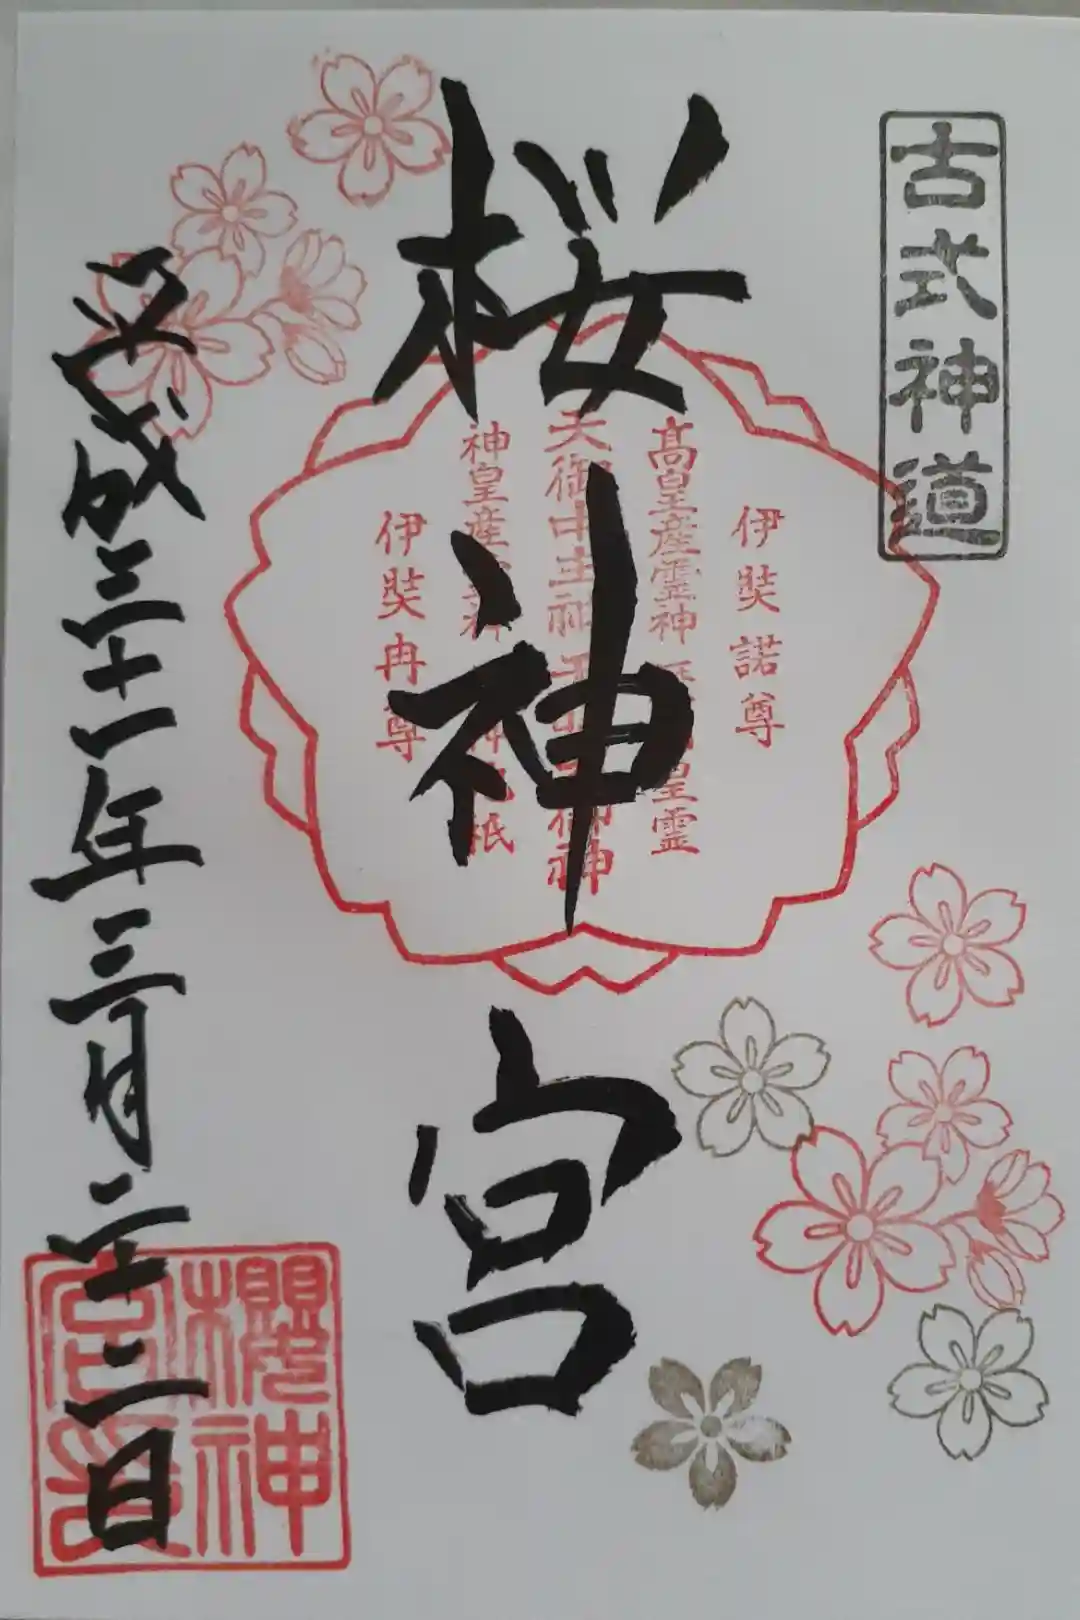 古式神道
伊奘諾尊
髙皇産霊神 皇霊
天御中主神 御神
神皇産霊神 祇
伊奘冉尊
桜神宮
平成三十一年三月二十二日
櫻神
宮